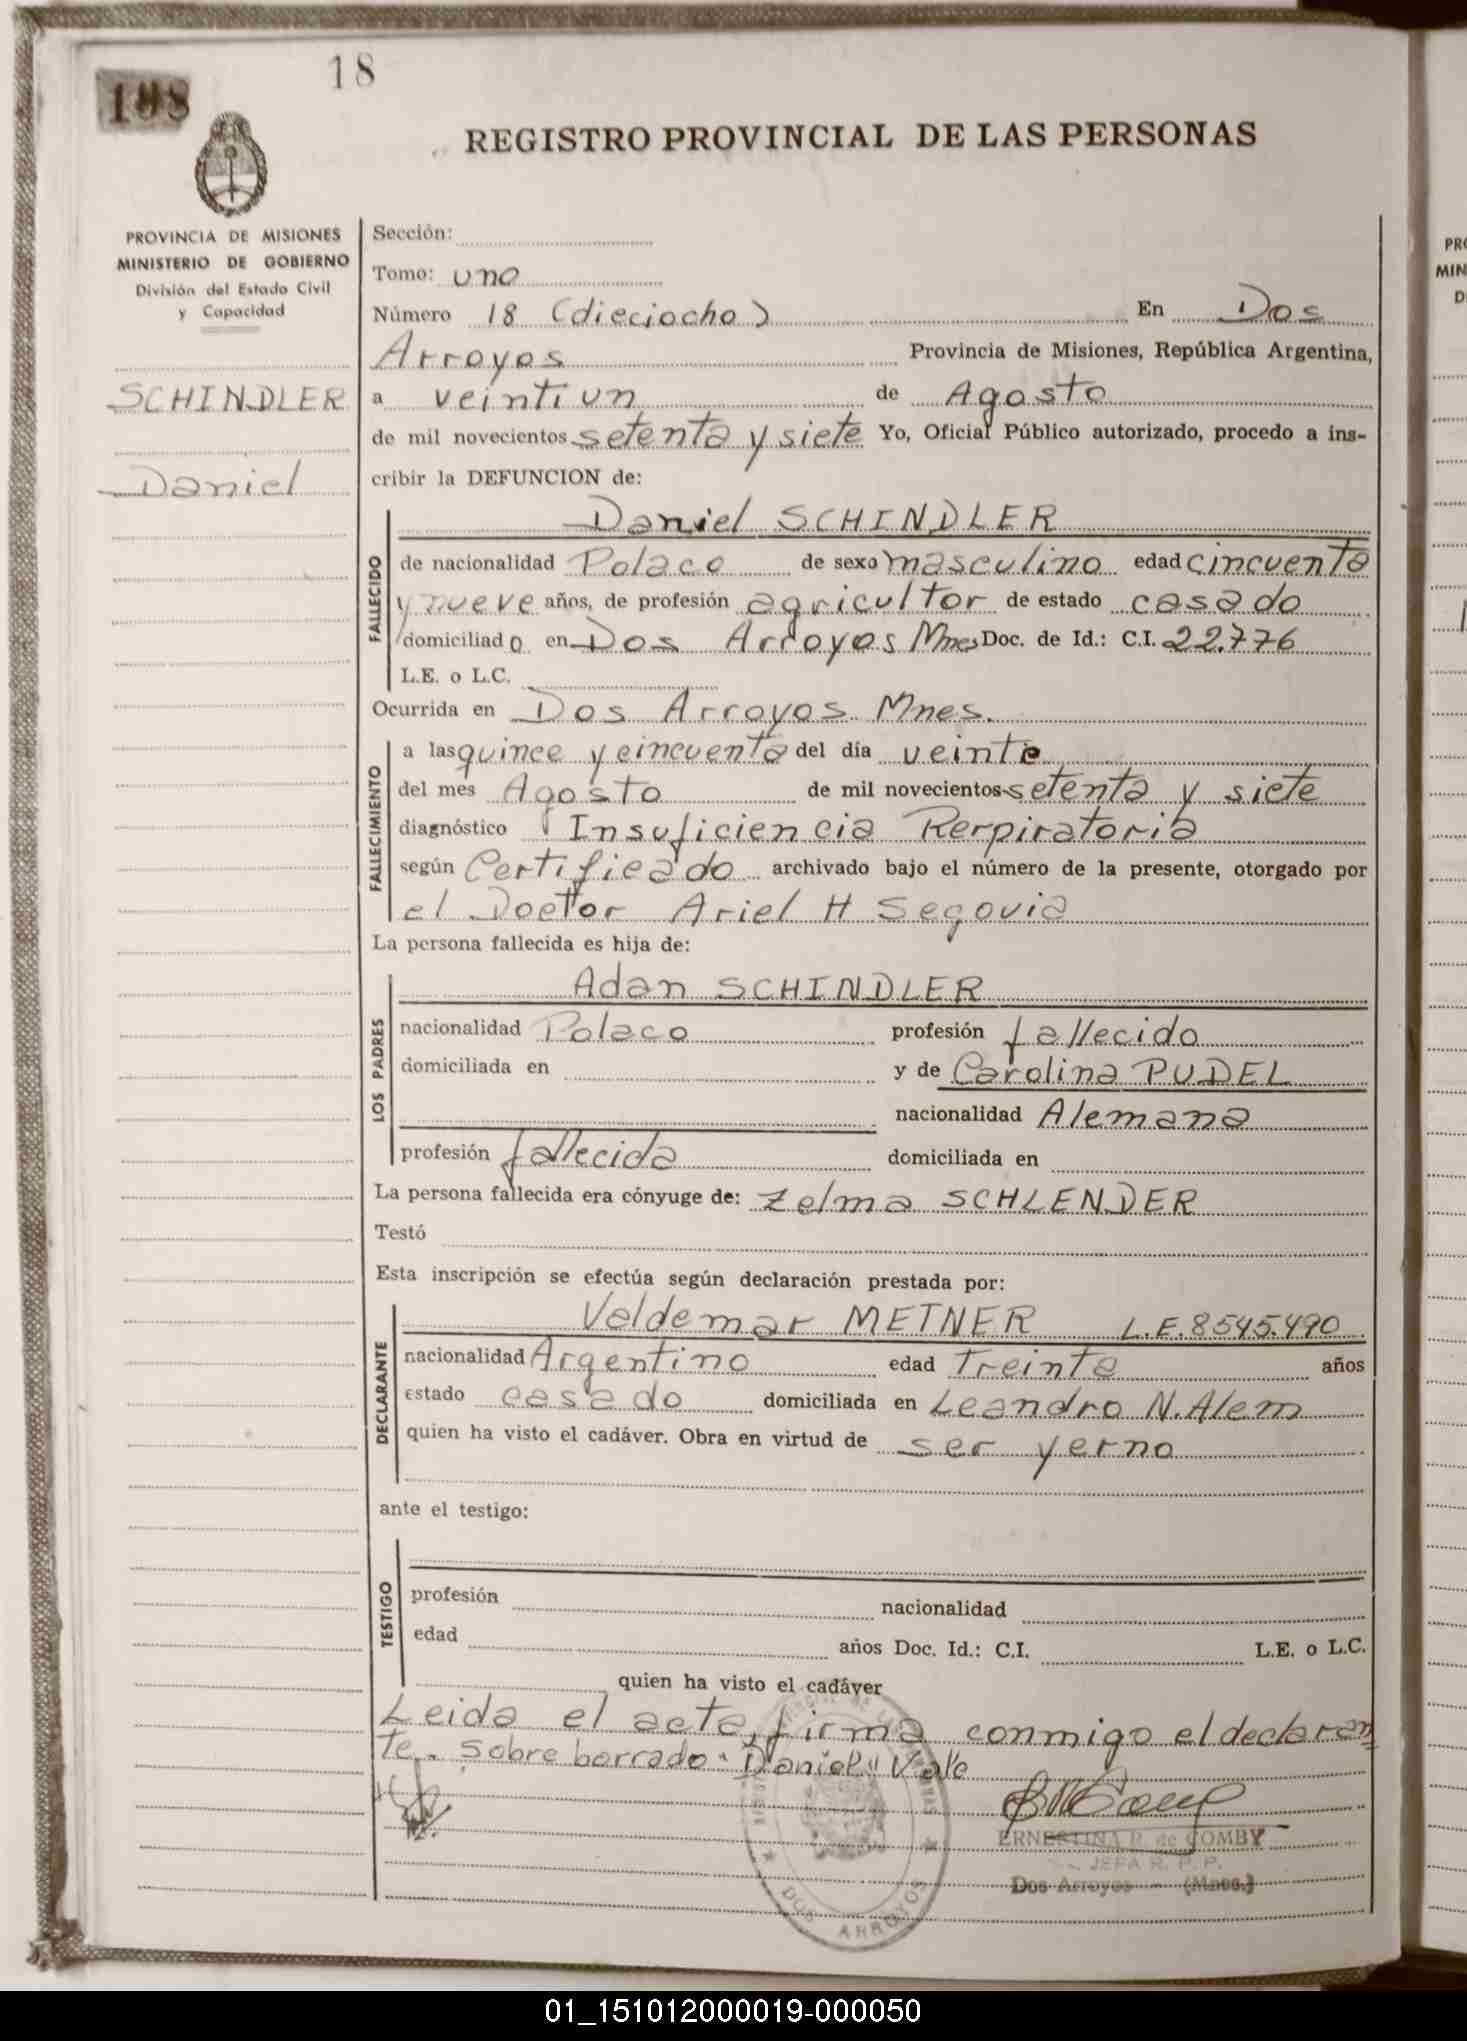 18
198
REGISTRO PROVINCIAL DE LAS PERSONAS
PROVINCIA DE MISIONES
MINISTERIO DE GOBIERNO
División del Estado Civil
y Capacidad
SCHINDLER
Daniel
Sección:
Tomo: uno
Número 18 (dieciocho) En Dos
Arroyos Provincia de Misiones, República Argentina,
a veintiun de Agosto
de mil novecientos setenta y siete Yo, Oficial Público autorizado, procedo a ins-
cribir la DEFUNCION de:
FALLECIDO
Daniel SCHINDLER
de nacionalidad Polaco de sexo masculino edad cincuenta
y nueve años, de profesión agricultor de estado casado
domiciliado en Dos Arroyos Mnes Doc. de Id.: C.I. 22.776
L.E. o L.C.
Ocurrida en Dos Arroyos Mnes.
FALLECIMIENTO
a las quince y cincuenta del día veinte
del mes Agosto de mil novecientos setenta y siete
diagnóstico Insuficiencia Rerpiratoria
según Certificado archivado bajo el número de la presente, otorgado por
el Doctor Ariel H Segovia
La persona fallecida es hija de:
LOS PADRES
Adan SCHINDLER
nacionalidad Polaco profesión fallecido
domiciliada en y de Carolina PUDEL
nacionalidad Alemana
profesión fallecida domiciliada en
La persona fallecida era cónyuge de: Zelma SCHLENDER
Testó
Esta inscripción se efectúa según declaración prestada por:
DECLARANTE
Valdemar METNER L.E. 8545.490
nacionalidad Argentino edad Treinta años
estado casado domiciliada en Leandro N. Alem
quien ha visto el cadáver. Obra en virtud de ser yerno
ante el testigo:
TESTIGO
profesión nacionalidad
edad años Doc. Id.: C.I. L.E. o L.C.
quien ha visto el cadáver
Leida el acta, firma conmigo el declaran
te. Sobre borrado "Daniel" Vale
ERNESTINA P. de COMBY
JEFA R. P. P.
Dos Arroyos (Mnes.)
DOS ARROYOS
PRO
MIN
D
01_151012000019-000050